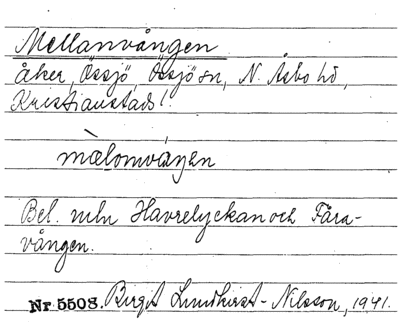 Mellanvången
åker, Össjö, Össjö sn, N. Åsbo hd,
Kristianstads l.
mèlomváŋen
Bel. mln Havrelyckan och Fåra-
vången.
Nr 5508. Birgit Lundkvist-Nilsson, 1941.